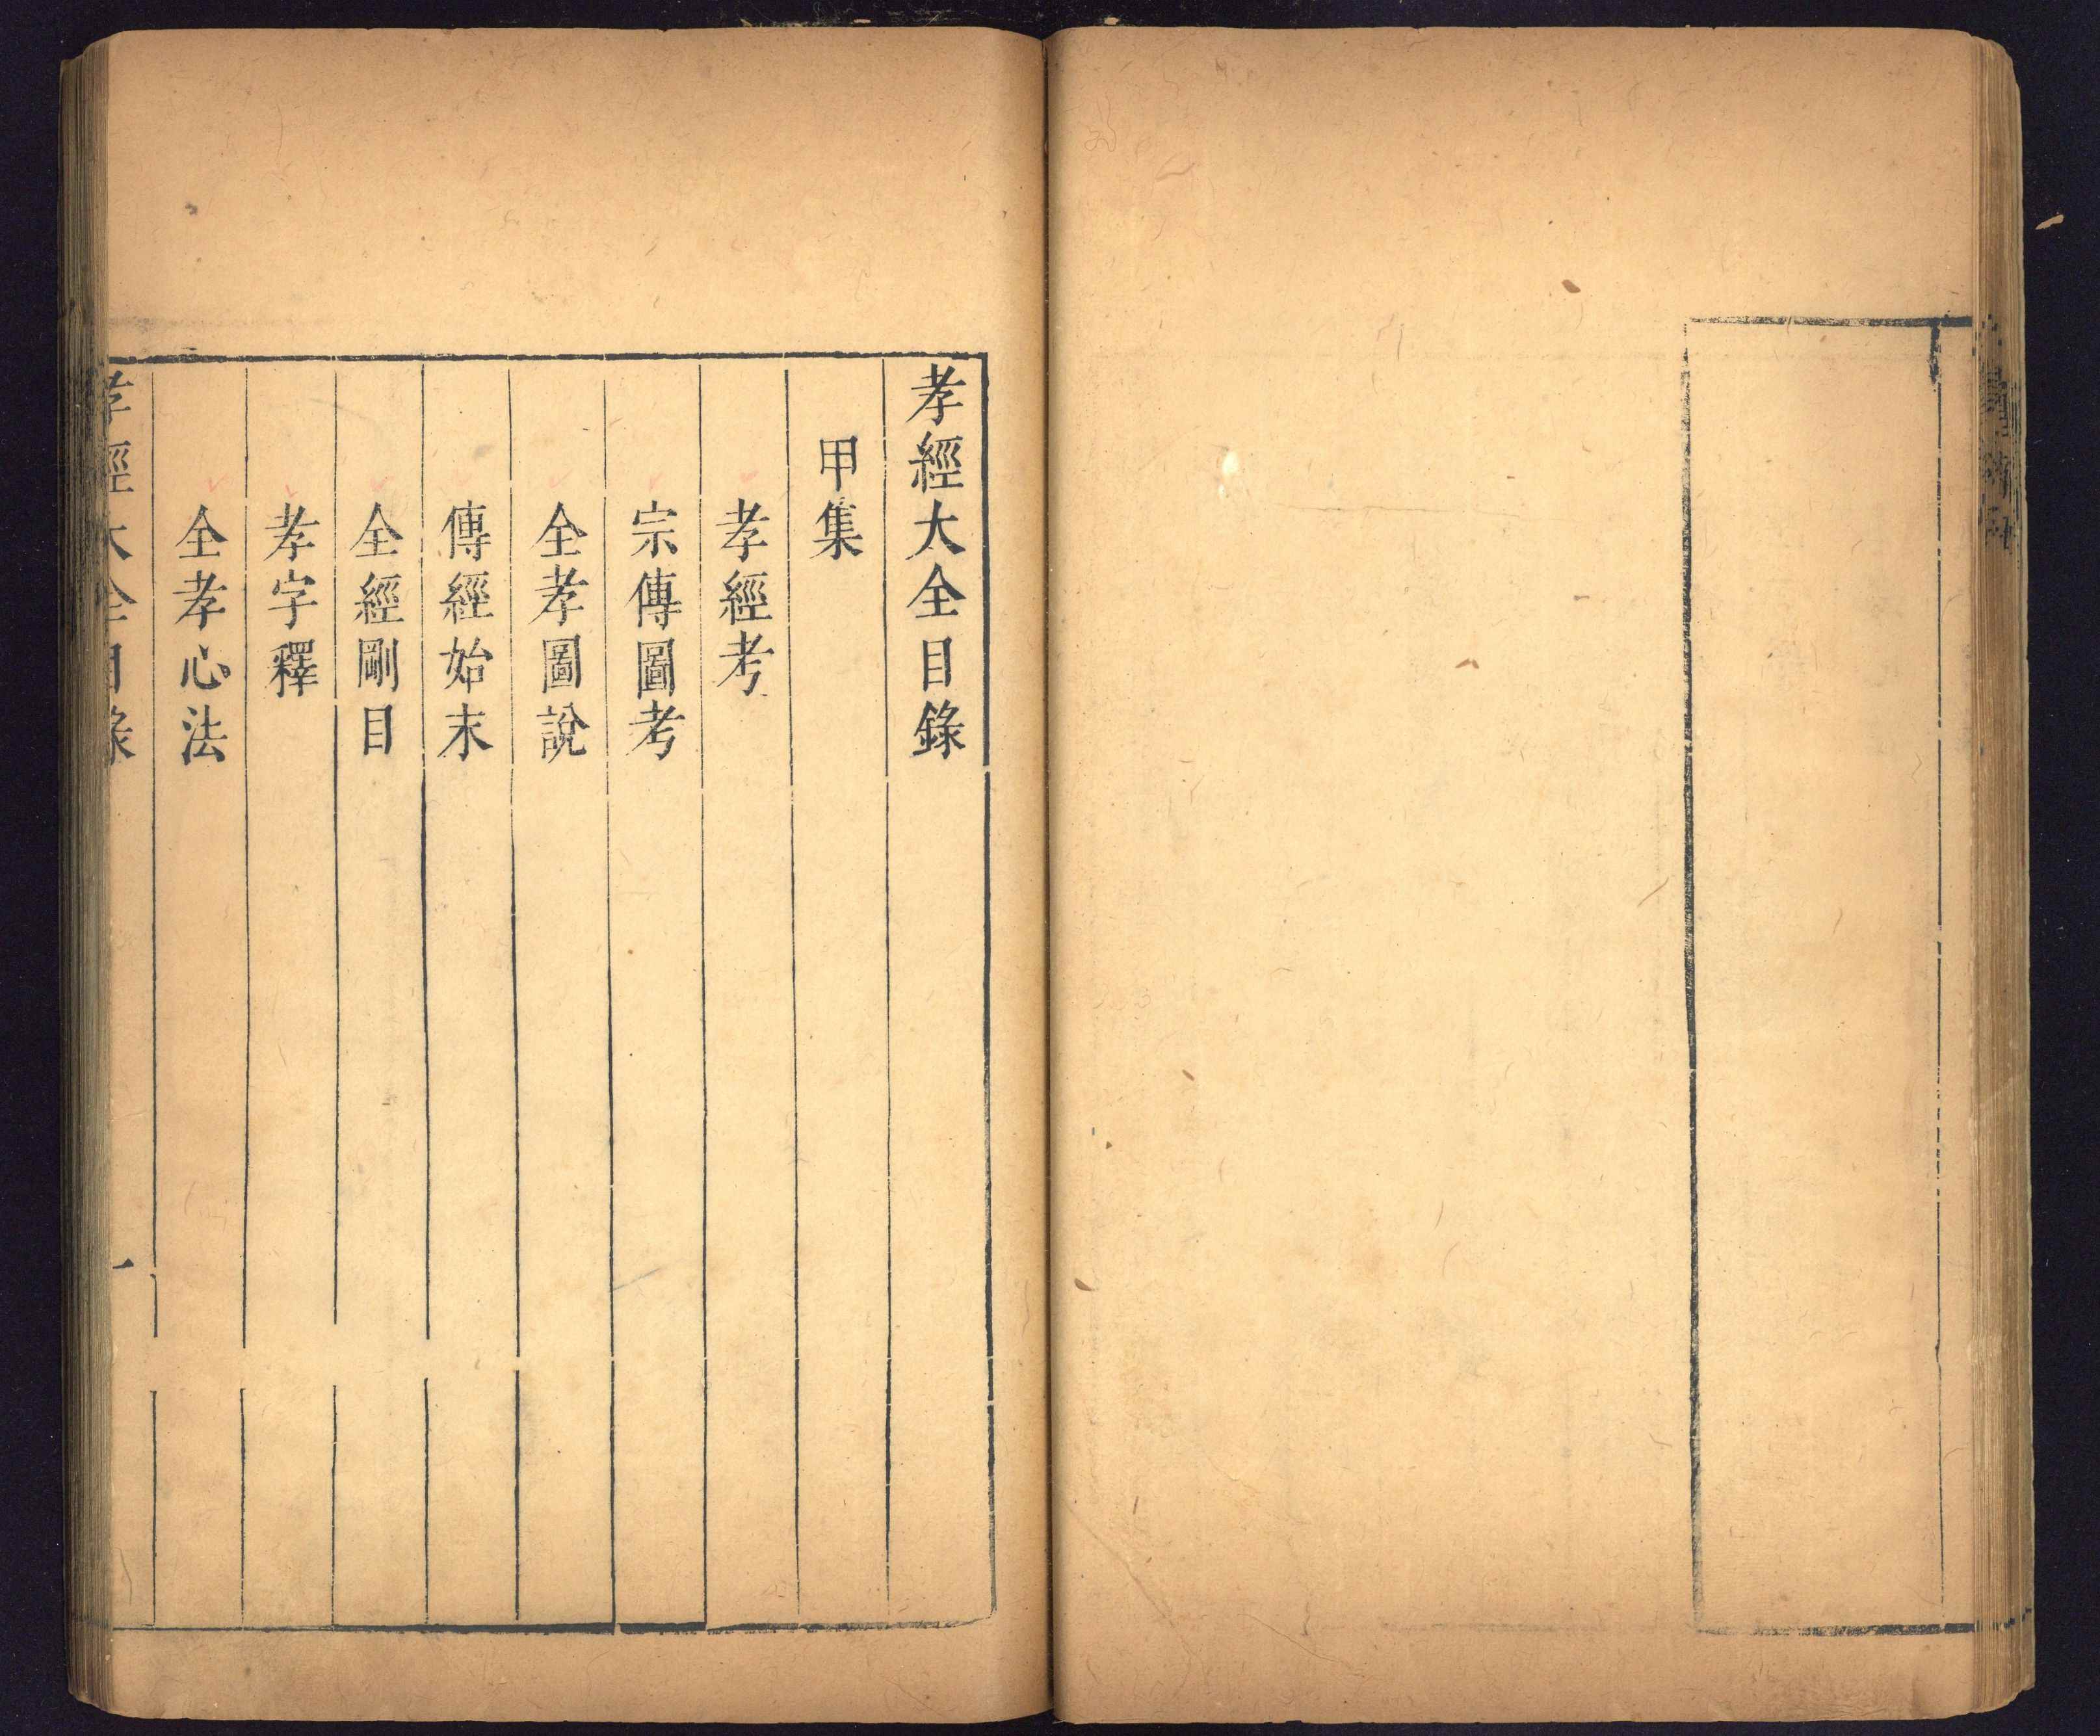 孝經大全目錄
甲集
孝經考
宗傳圖考
全孝圖說
傳經始末
全經剛目
孝字釋
全孝心法
孝經大全目錄 一